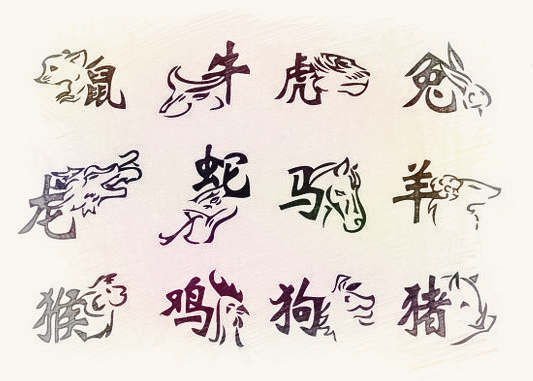 鼠 牛 虎 兔
龙 蛇 马 羊
猴 鸡 狗 猪